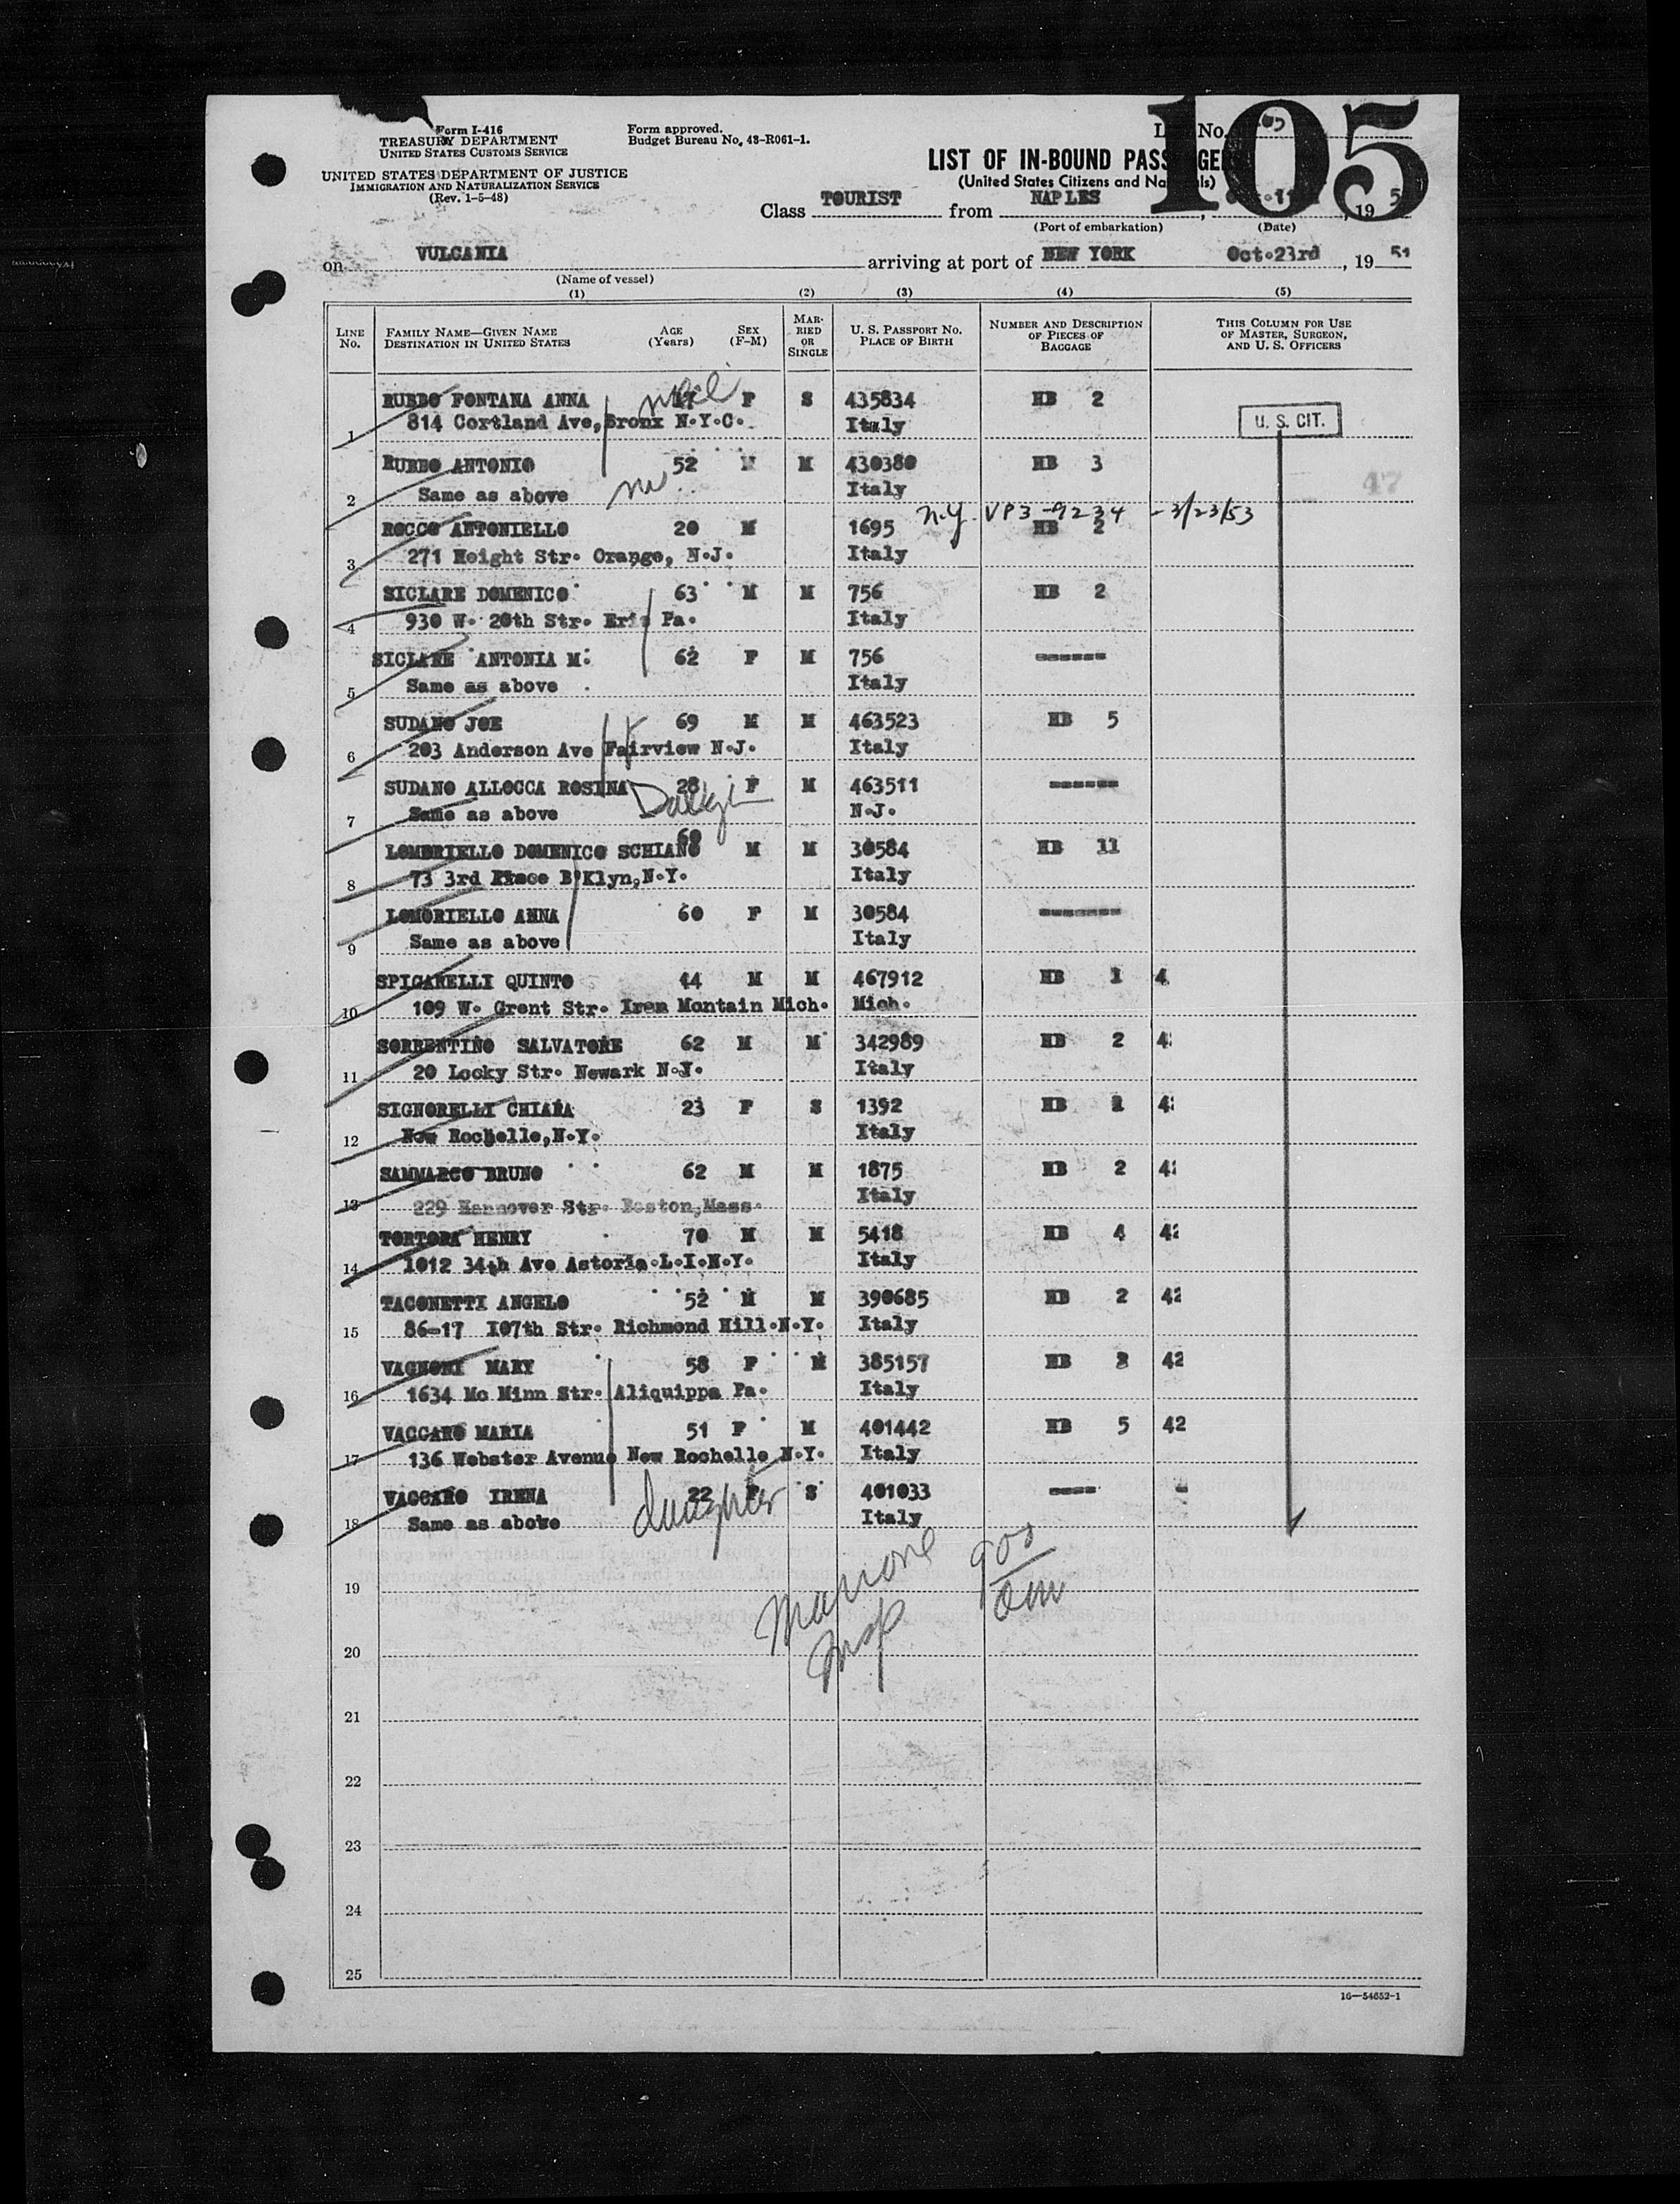 Form I-416
TREASURY DEPARTMENT
UNITED STATES CUSTOMS SERVICE
UNITED STATES DEPARTMENT OF JUSTICE
IMMIGRATION AND NATURALIZATION SERVICE
(Rev. 1-5-48)
Form approved.
Budget Bureau No. 43-R061-1.
105
LIST OF IN-BOUND
(United States Citizens and
Class TOURIST from NAPLES , 19
(Port of embarkation) (Date)
on VULCANIA arriving at port of NEW YORK Oct.23rd , 19 51
(Name of vessel)
(1) (2) (3) (4) (5)
LINE No. FAMILY NAME—GIVEN NAME DESTINATION IN UNITED STATES AGE (Years) SEX (F-M) MARRIED OR SINGLE U. S. PASSPORT NO. PLACE OF BIRTH NUMBER AND DESCRIPTION OF PIECES OF BAGGAGE THIS COLUMN FOR USE OF MASTER, SURGEON, AND U. S. OFFICERS
RUBBO FONTANA ANNA F S 435834 HB 2
1 814 Cortland Ave, Bronx N.Y.C. Italy U. S. CIT.
RUBBO ANTONIO 52 M M 430380 HB 3
2 Same as above Italy 47
N.Y. VP3-9234 -3/23/53
ROCCO ANTONIELLO 20 M 1695 HB 2
3 271 Height Str. Orange, N.J. Italy
SICLARE DOMENICO 63 M M 756 HB 2
4 930 W. 20th Str. Erie Pa. Italy
SICLARE ANTONIA M. 62 F M 756 ------
5 Same as above . Italy
SUDANO JOE 69 M M 463523 HB 5
6 203 Anderson Ave Fairview N.J. Italy
SUDANO ALLOCCA ROSINA 28 F M 463511 ------
7 Same as above N.J.
LOMORIELLO DOMENICO SCHIANO 60 M M 30584 HB 11
8 73 3rd Place B'Klyn,N.Y. Italy
LOMORIELLO ANNA 60 F M 30584 -------
9 Same as above Italy
SPICARELLI QUINTO 44 M M 467912 HB 1 4
10 109 W. Grent Str. Iren Montain Mich. Mich.
SORRENTINO SALVATORE 62 M M 342989 HB 2 4
11 20 Locky Str. Newark N.J. Italy
SIGNORELLI CHIARA 23 F S 1392 HB 4
12 New Rochelle,N.Y. Italy
SAMMARCO BRUNO 62 M M 1875 HB 2 4
13 229 Hannover Str. Boston,Mass. Italy
TORTORA HENRY 70 M M 5418 HB 4 42
14 1012 34th Ave Astoria.L.I.N.Y. Italy
TACONETTI ANGELO 52 M M 390685 HB 2 42
15 86-17 107th Str. Richmond Hill.N.Y. Italy
VAGNONI MARY 58 F M 385157 HB 42
16 1634 Mc Minn Str. Aliquippa Pa. Italy
VACCARO MARIA 51 F M 401442 HB 5 42
17 136 Webster Avenue New Rochelle N.Y. Italy
VACCARO IRENA 22 F S 401033 ----
daughter
18 Same as above Italy
19
20
21
22
23
24
25
16—54652-1